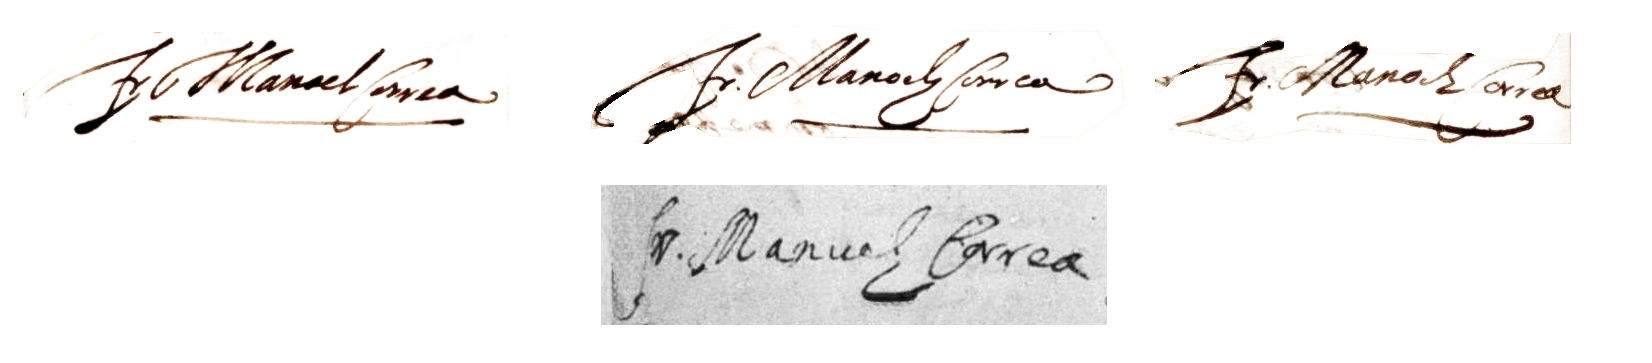 Fr. Manoel Correa
Fr. Manoel Correa
Fr. Manoel Correa
Fr. Manuel Correa